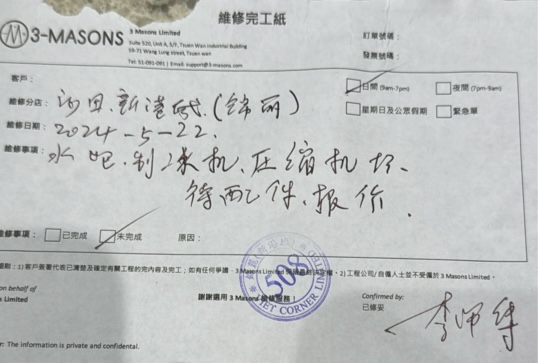 維修完工紙
3-MASONS
3 Masons Limited
Suite 520, Unit A, 5/F, Tsuen Wan Industrial Building
59-71 Wang Lung Street, Tsuen wan
Tel: 51-091-091 | Email: support@3-masons.com
訂單號碼：
發票號碼：
客戶：
日間 (9am-7pm)
夜間 (7pm-9am)
維修分店： 沙田.新港城.(錦丽)
星期日及公眾假期
緊急單
維修日期： 2024-5-22.
維修事項： 水吧.制冰机.压缩机坏.
待配件.报价.
維修事項：
已完成
未完成
原因：
1) 客戶簽署代表已清楚及確定有關工程的完內容及完工；如有任何爭議，3 Masons Limited
2) 工程公司/自僱人士並不受僱於 3 Masons Limited。
on behalf of
s Limited
謝謝選用 3 Masons 維修服務！
508
CORNER
Confirmed by:
已修妥
李
The information is private and confidential.